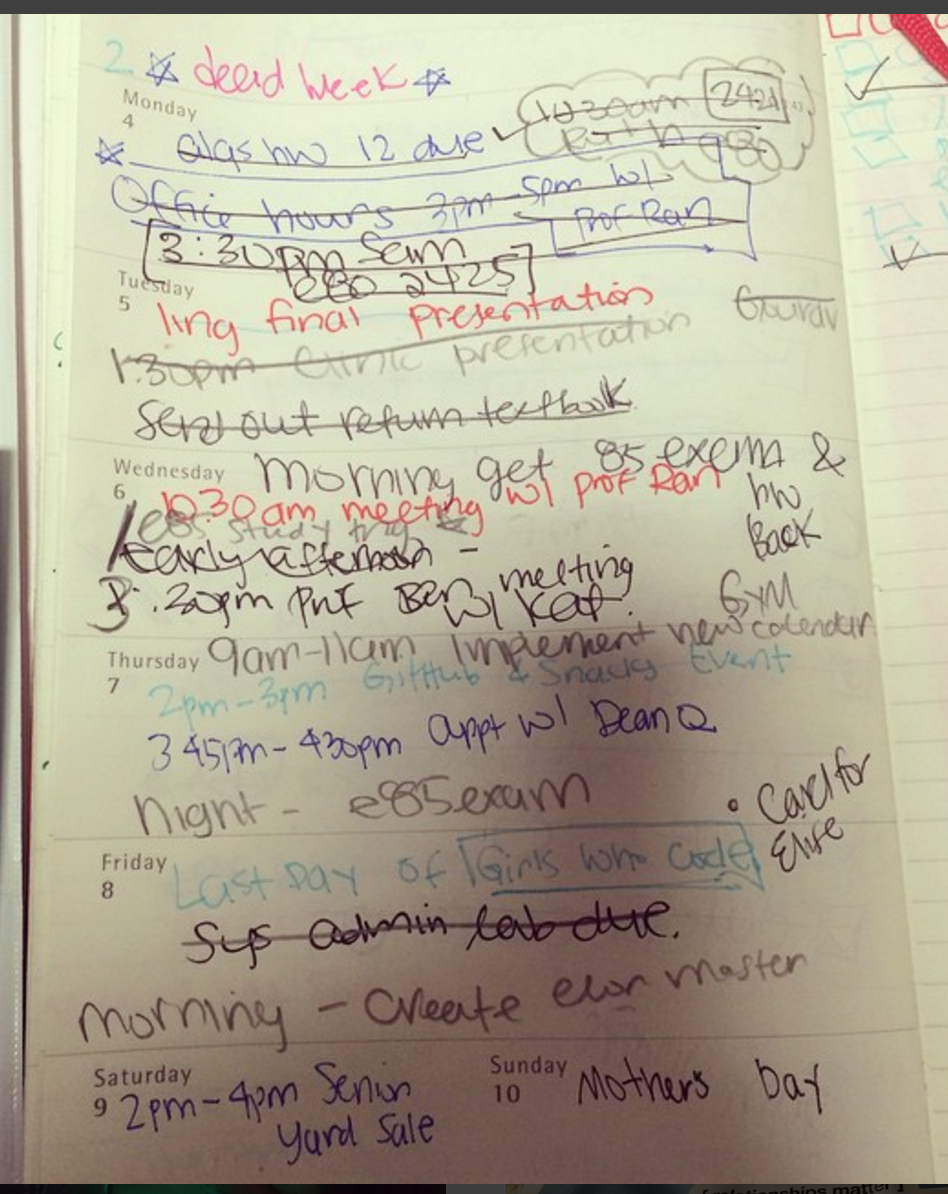 2 ☆ dead week ☆
Monday
4
algs hw 12 due ✓
10:30am 2421
Beth e80
Office hours 3pm-5pm w/
Prof Ran
3:30pm Sem
e80 2425
Tuesday
5
ling final presentation
1:30pm Clinic presentation
Send out return textbook
Wednesday
6
Morning get 85 exam &
hw
Back
10:30am meeting w/ Prof Ran
e85 study
early afternoon -
3:30pm Prof Ben meeting
w/ Kat.
GYM
Thursday
7
9am-11am Implement new calendar
2pm-3pm GitHub & Snacks Event
345pm-430pm appt w/ Dean Q
Night - e85 exam
• Card for
Elise
Friday
8
Last Day of Girls Who Code
Sys admin lab due.
Morning - Create master
Saturday
9
2pm-4pm Senior
Yard Sale
Sunday
10
Mothers Day
relationships matter